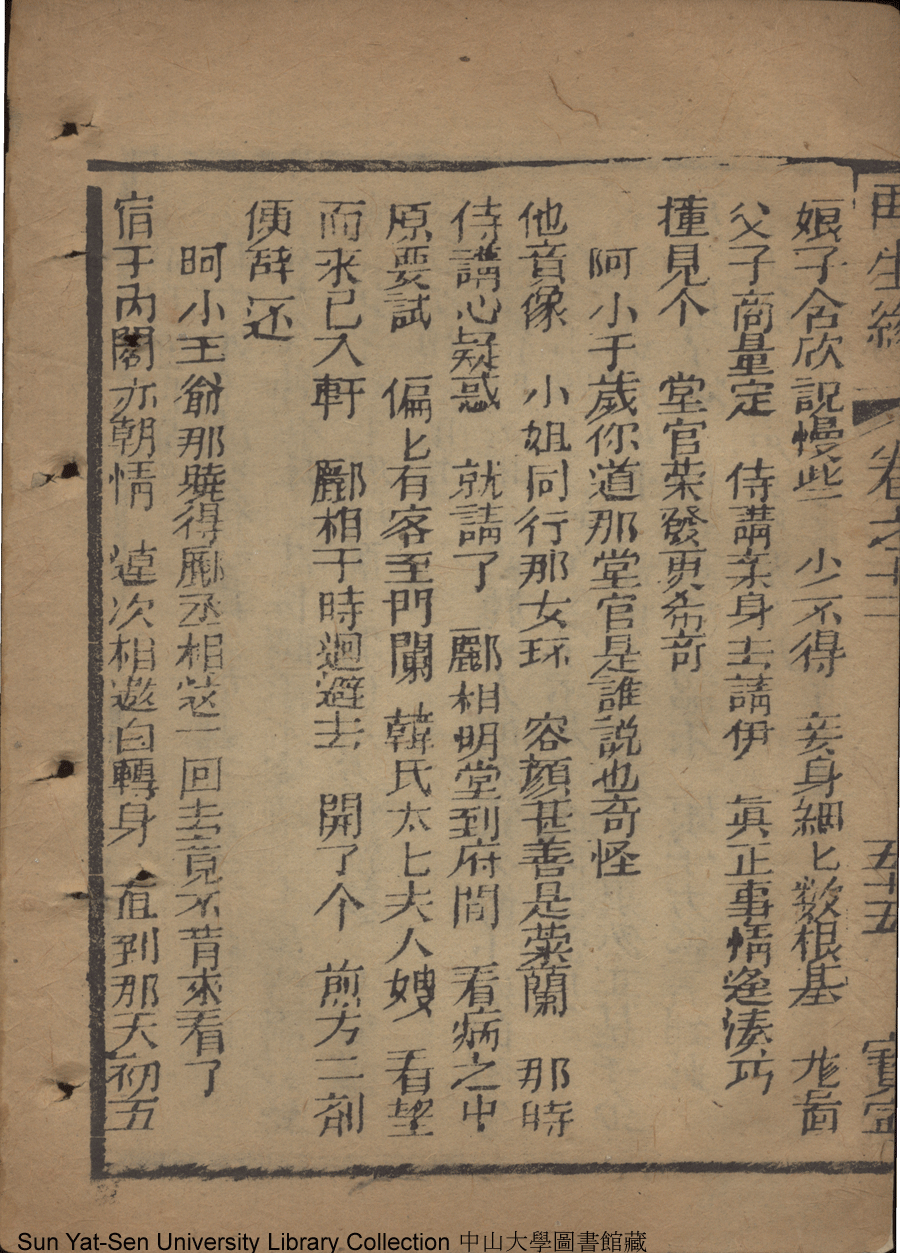 再生緣 卷之十三 五十五 寶寧
娘子含欣説慢些 少不得 妾身細匕數根基 當
父子商量定 侍講亲身去請伊 真正事情逢湊巧
撞見个 堂官荣發更希奇
阿小千歲你道那堂官是誰説也奇怪
他音像 小姐同行那女环 容顔甚善是荣蘭 那時
侍講心疑惑 就請了 酈相明堂到府間 看病之中
原要試 偏匕有客至門闌 韓氏太匕夫人嫂 看望
而來已入軒 酈相于時迴避去 開了个 煎方二剂
便辞还
呵小王爺那曉得酈丞相這一回去竟不肯來看了
宿于内閣亦朝情 連次相邀自轉身 直到那天初五
Sun Yat-Sen University Library Collection 中山大學圖書館藏